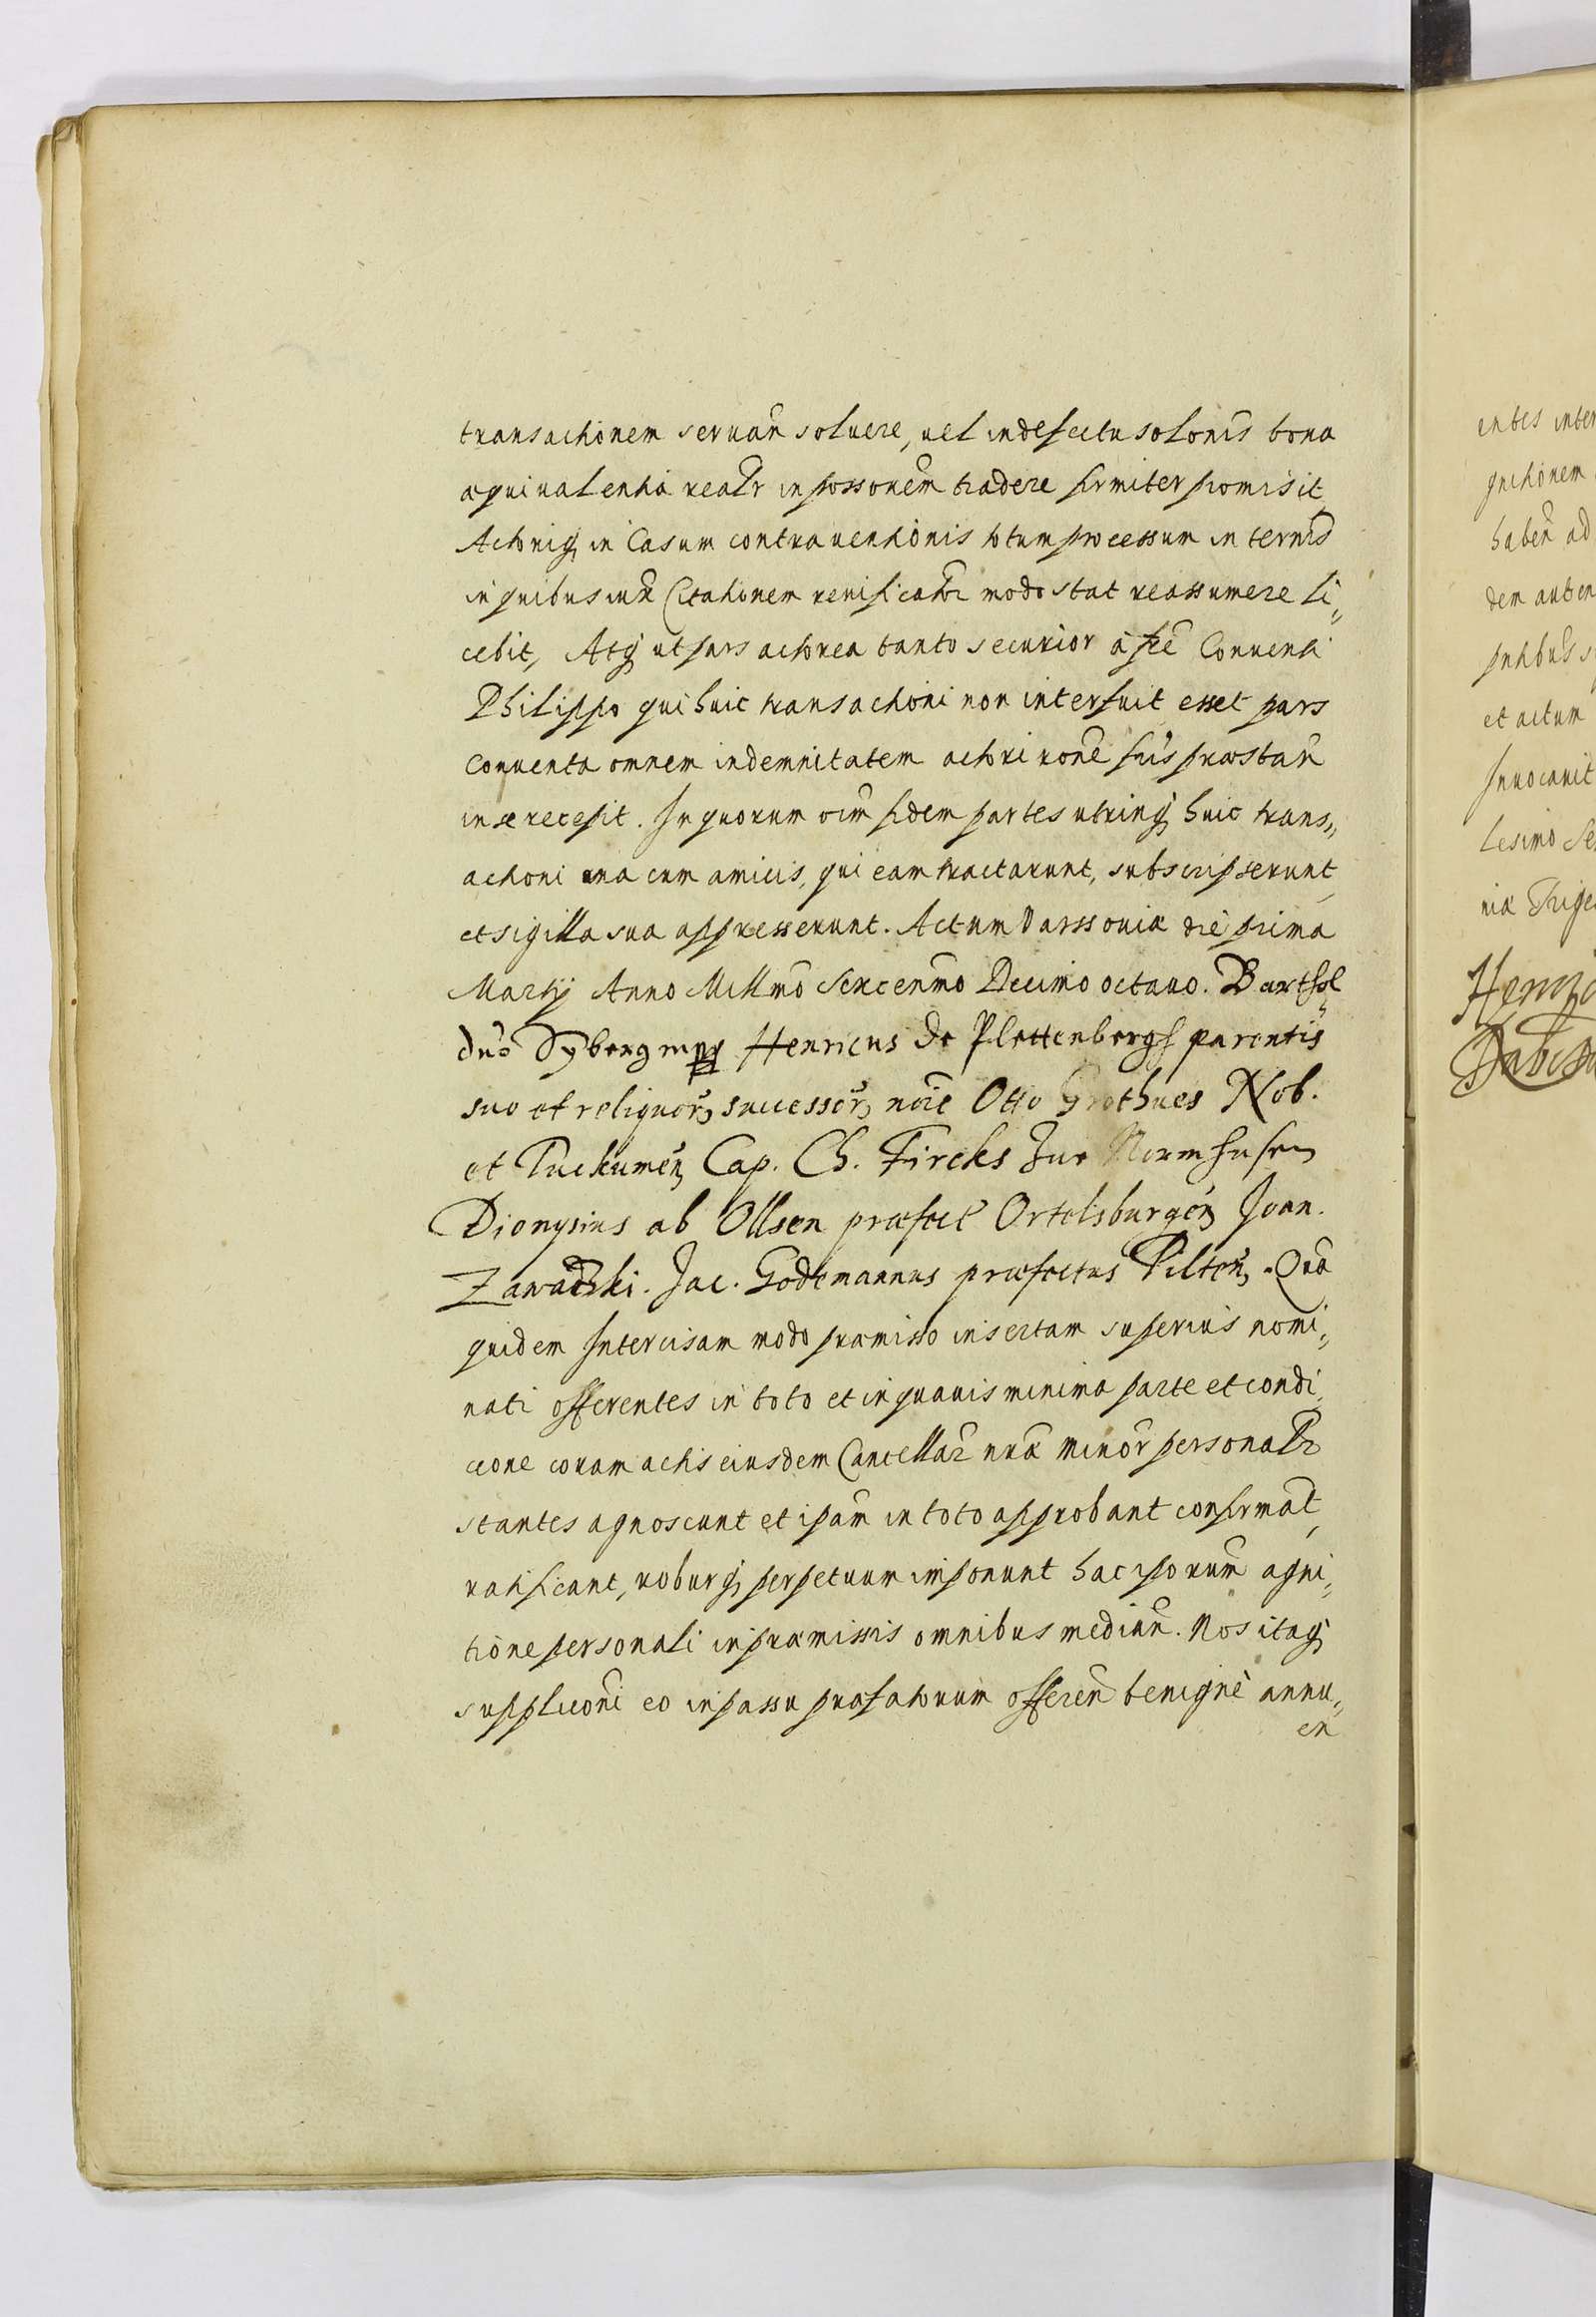 transactionem seruan̄ soluere, uel in defectu solonīs bona
æquiualentia realr̄ in possonēm tradere firmiter promisit
Actoriq; in Casum contrauentionis totum processum in termīs
in quibus iux Citationem reuificator̄ modo stat reassumere li„
cebit, Atq; ut pars actorea tanto securior à fr̄e Conuenti
Philippo qui huic transactioni non interfuit esset pars
Conuenta omnem indemnitatem actori rōne sūis præstan̄
in se recepit. In quorum oīm fidem partes utrinq; huic trans„
actioni una cum amicis, qui eam tractarunt, subscripserunt
et sigilla sua appresserunt. Actum Varssouiæ die prima
Martij Anno Millm̄o Sexcenm̄o Decimo octauo. Barthol
dūs Syberg mpp Henricus de Plettenbergh parentis
suo et reliquor̄, successor̄, nōie Otto Grothues Nob.
et Tuckumen̄, Cap. Ch. Fircks Zue Nurmhusen
Dionysius ab Ollsen præfect Ortelsburgen̄, Joan.
Zawadzki. Jac. Godtmannus præfectus Pilten̄, Quā
quidem Intercisam modo præmisso insertam superius nomi„
nati offerentes in toto et in quauis minima parte et condi
cione coram actis eiusdem Cancellar̄ nr̄æ Minor̄ personalr̄
stantes agnoscunt et ipsam̄ in toto approbant confirmat̄,
ratificant, roburq; perpetuum imponunt hac ipsorum̄ agni„
tione personali in præmissis omnibus median̄. Nos itaq;
supplicōni eo in passu præfatorum offeren̄ benignè annu„
en
entes inter
haben̄ ad
et actum
Inuocauit
lesimo Se
niæ Trige